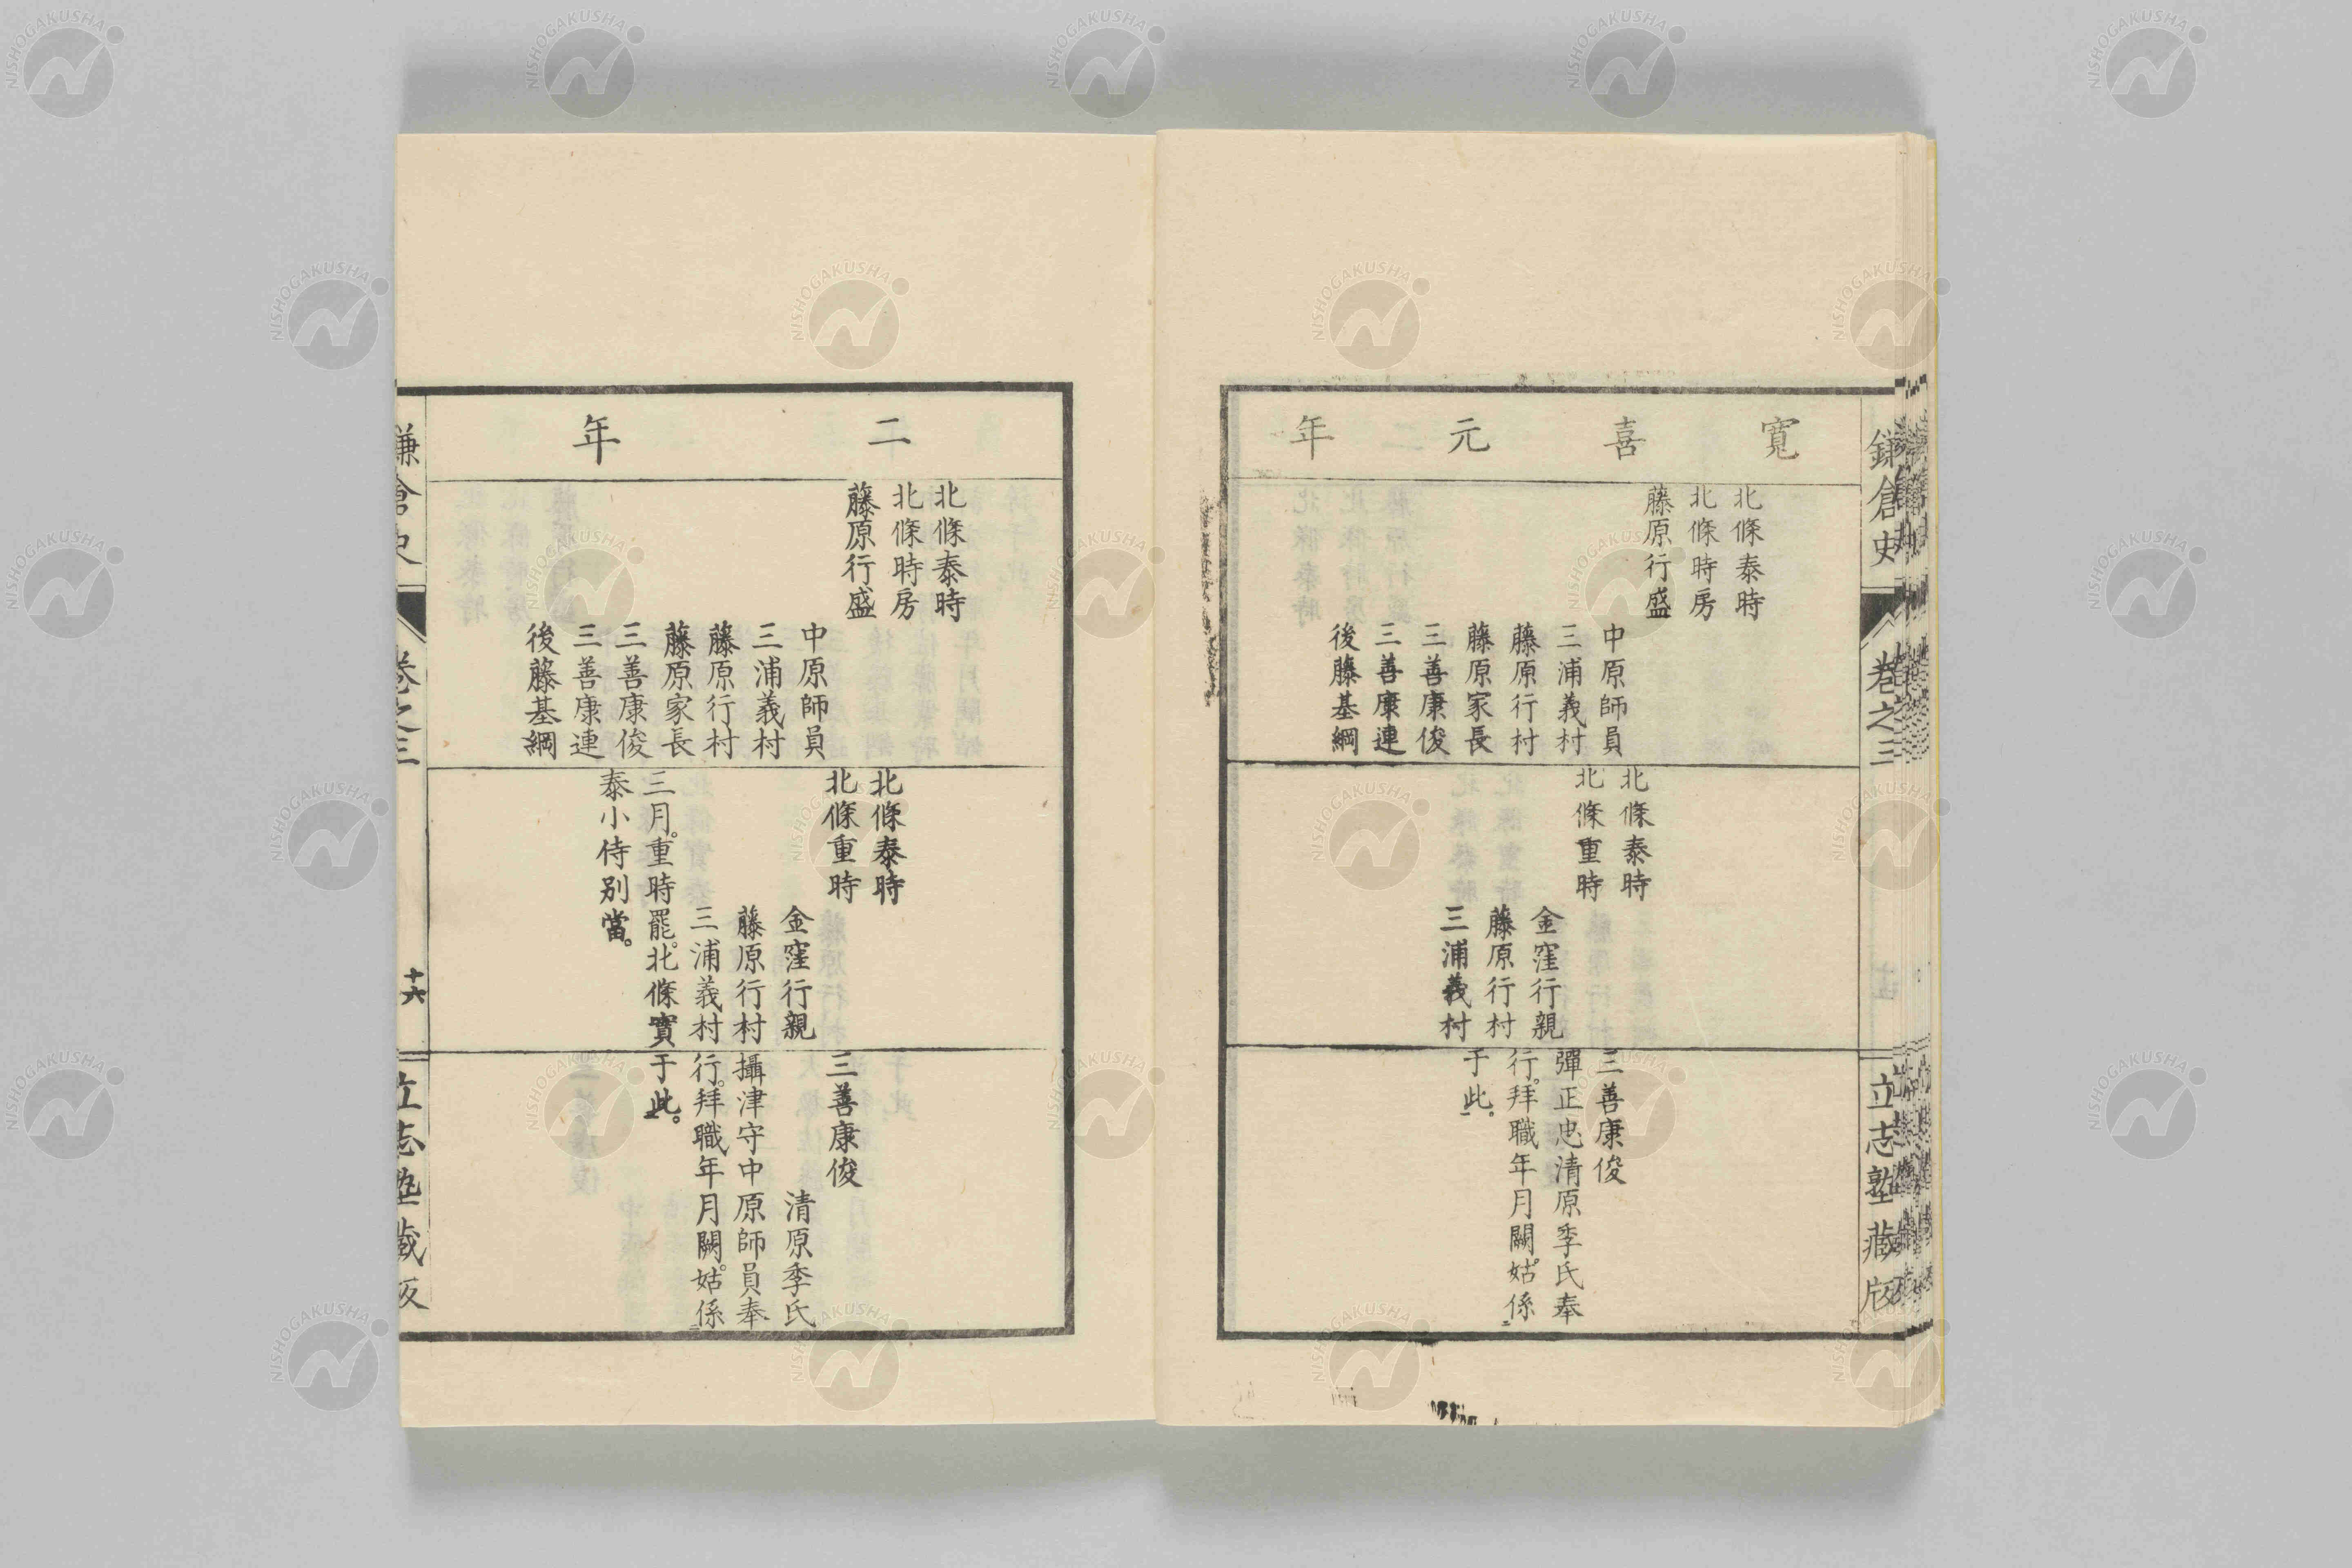 鎌倉史
卷之三
立志塾藏版
寬喜元年
北條泰時
北條時房
藤原行盛
中原師員
三浦義村
藤原行村
藤原家長
三善康俊
三善康連
後藤基綱
北條泰時
北條重時
金窪行親
藤原行村
三浦義村
三善康俊
彈正忠清原季氏奉
行。拜職年月闕。姑係
于此。
二年
北條泰時
北條時房
藤原行盛
中原師員
三浦義村
藤原行村
藤原家長
三善康俊
三善康連
後藤基綱
北條泰時
北條重時
金窪行親
藤原行村
三浦義村
三月。重時罷。北條實
泰小侍別當。
三善康俊
清原季氏
攝津守中原師員奉
行。拜職年月闕。姑係
于此。
鎌倉史
卷之三
十六
立志塾藏版
NISHOGAKUSHA